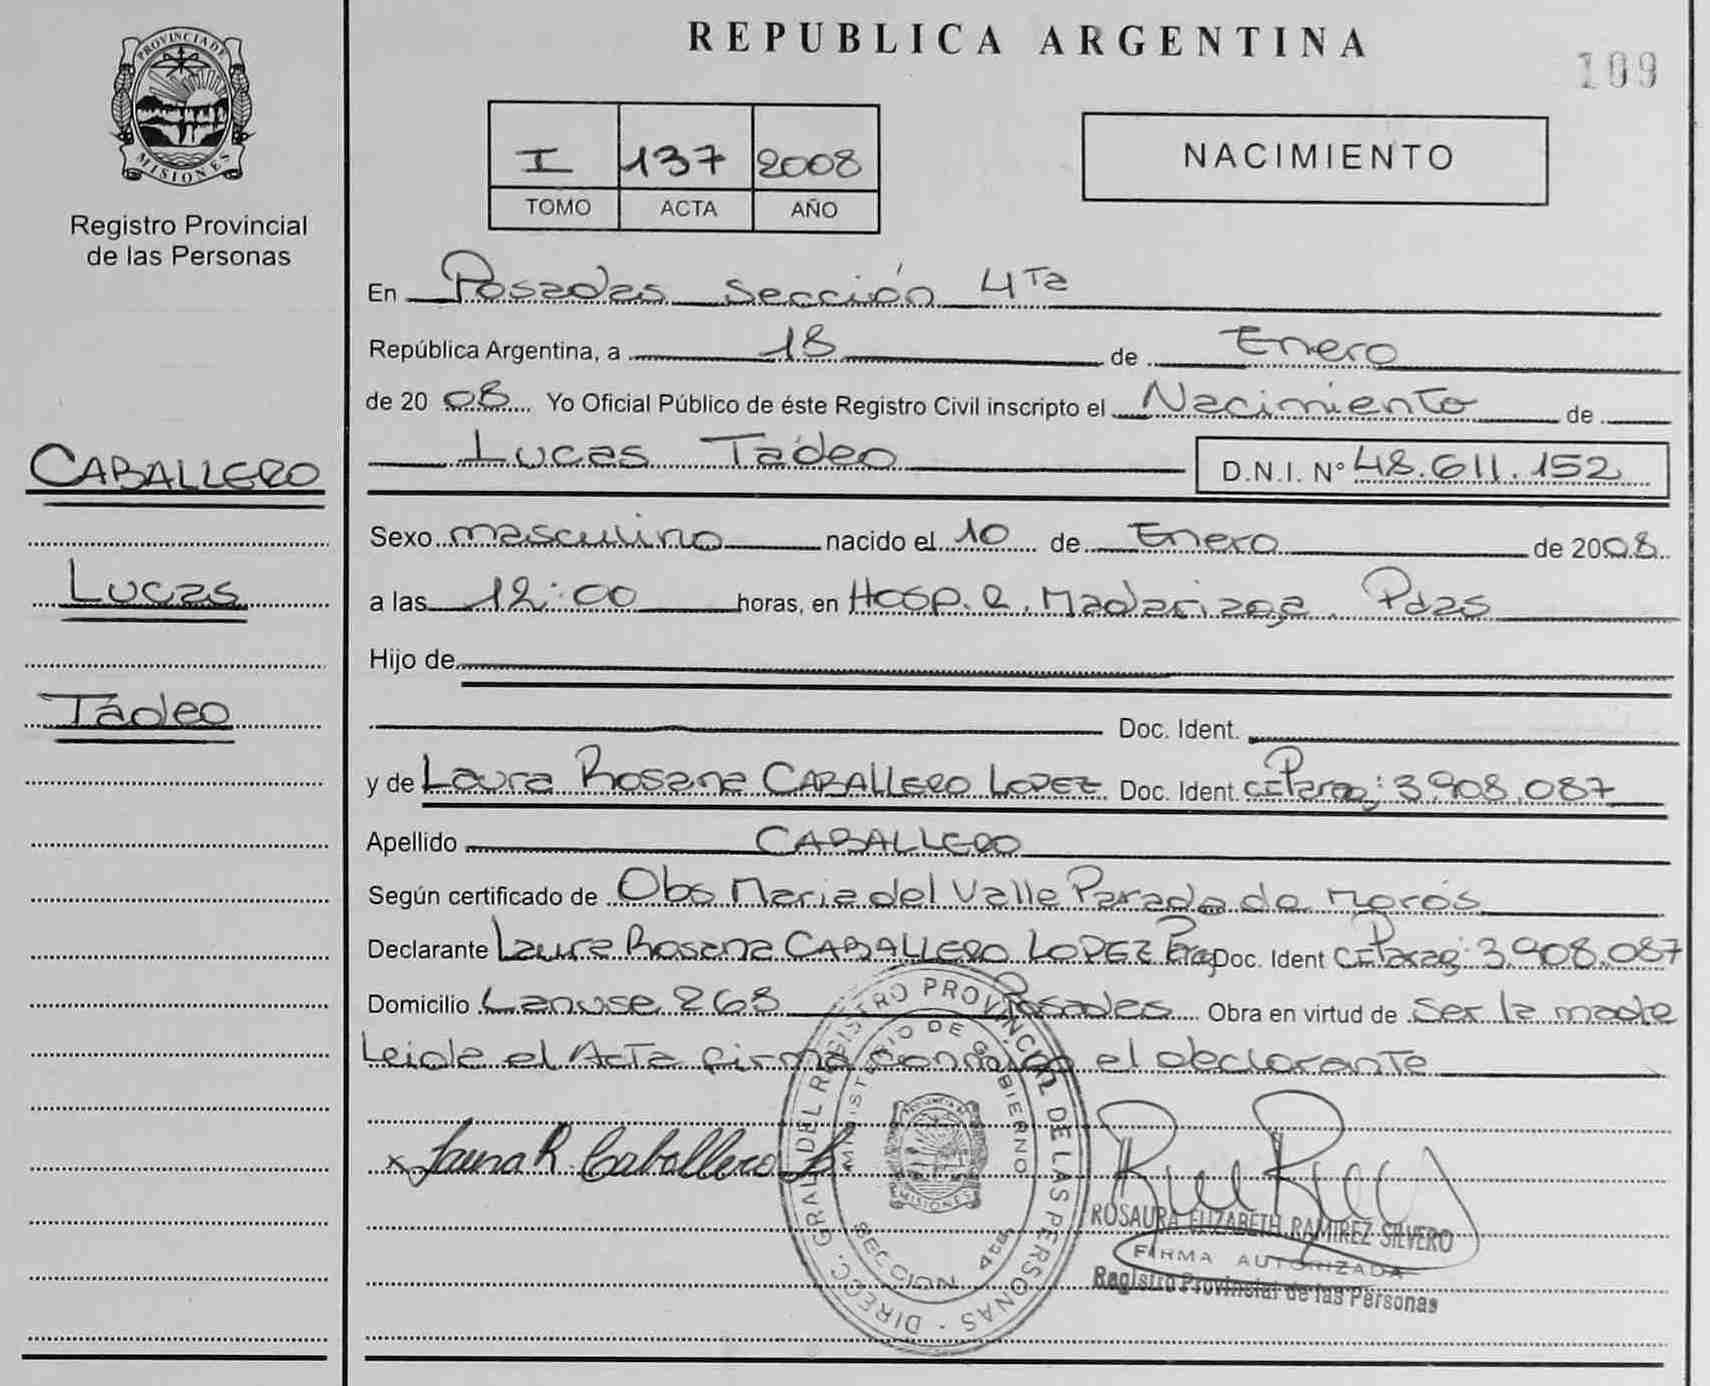 REPUBLICA ARGENTINA
109
PROVINCIA DE MISIONES
Registro Provincial
de las Personas
I 137 2008
TOMO ACTA AÑO
NACIMIENTO
En Posadas sección 4Ta
República Argentina, a 18 de Enero
de 2008 Yo Oficial Público de éste Registro Civil inscripto el Nacimiento de
Lucas Tádeo D.N.I. Nº 48.611.152
CABALLERO
Lucas
Tádeo
Sexo masculino nacido el 10 de Enero de 2008
a las 12:00 horas, en Hosp. R. Madariaga. Pdas
Hijo de
Doc. Ident.
y de Laura Rosana CABALLERO LOPEZ Doc. Ident. CI Parag: 3.908.087
Apellido CABALLERO
Según certificado de Obs Maria del Valle Parada de Morós
Declarante Laura Rosana CABALLERO LOPEZ Doc. Ident CI Parag: 3.908.087
Domicilio Lanuse 268 Posadas Obra en virtud de ser la madre
Leida el Acta firma conmigo el declarante
x Laura R. Caballero L
DIREC. GRAL. DEL REGISTRO PROVINCIAL DE LAS PERSONAS
MINISTERIO DE GOBIERNO
SECCION 4ta
MISIONES
ROSAURA ELIZABETH RAMIREZ SILVERO
FIRMA AUTORIZADA
Registro Provincial de las Personas